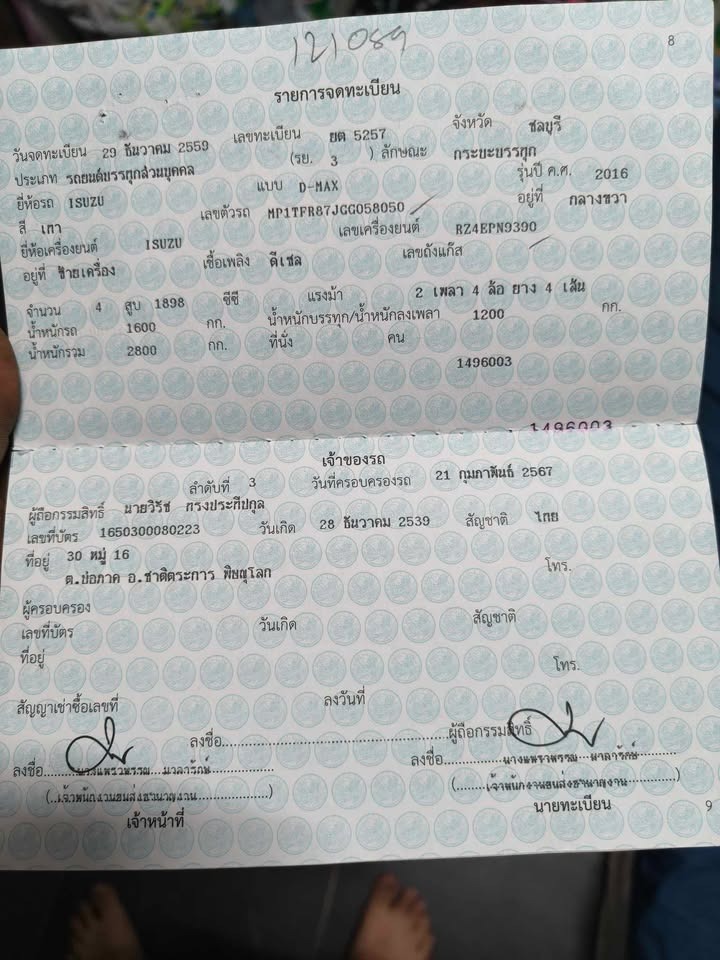 121089
8
รายการจดทะเบียน
วันจดทะเบียน 29 ธันวาคม 2559 เลขทะเบียน ยต 5257 จังหวัด ชลบุรี
ประเภท รถยนต์บรรทุกส่วนบุคคล (รย. 3 ) ลักษณะ กระบะบรรทุก
ยี่ห้อรถ ISUZU แบบ D-MAX รุ่นปี ค.ศ. 2016
สี เทา เลขตัวรถ MP1TFR87JGG058050 อยู่ที่ กลางขวา
ยี่ห้อเครื่องยนต์ ISUZU เลขเครื่องยนต์ RZ4EPN9390
อยู่ที่ ซ้ายเครื่อง เชื้อเพลิง ดีเซล เลขถังแก๊ส
จำนวน 4 สูบ 1898 ซีซี แรงม้า 2 เพลา 4 ล้อ ยาง 4 เส้น
น้ำหนักรถ 1600 กก. น้ำหนักบรรทุก/น้ำหนักลงเพลา 1200 กก.
น้ำหนักรวม 2800 กก. ที่นั่ง คน
1496003
1496003
เจ้าของรถ
ลำดับที่ 3 วันที่ครอบครองรถ 21 กุมภาพันธ์ 2567
ผู้ถือกรรมสิทธิ์ นายวิรัช ทรงประทีปกุล
เลขที่บัตร 1650300080223 วันเกิด 28 ธันวาคม 2539 สัญชาติ ไทย
ที่อยู่ 30 หมู่ 16
ต.บ่อภาค อ.ชาติตระการ พิษณุโลก โทร.
ผู้ครอบครอง
เลขที่บัตร วันเกิด สัญชาติ
ที่อยู่
โทร.
สัญญาเช่าซื้อเลขที่ ลงวันที่
ลงชื่อ ผู้ถือกรรมสิทธิ์
ลงชื่อ มาลารักษ์ ลงชื่อ มาลารักษ์
(เจ้าพนักงานขนส่งชำนาญงาน) (เจ้าพนักงานขนส่งชำนาญงาน)
เจ้าหน้าที่ นายทะเบียน
9